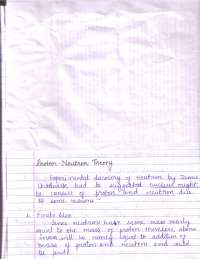 Proton-Neutron Theory
Experimental discovery of neutron by James
Chadwick had to suggested nucleus might
be consist of proton and neutron due
to some reasons
1. Finite Size
Since neutrons have some mass nearly
equal to the mass of proton therefore atomic
masses will be nearly equal to addition of
masses of proton and neutron and could
be